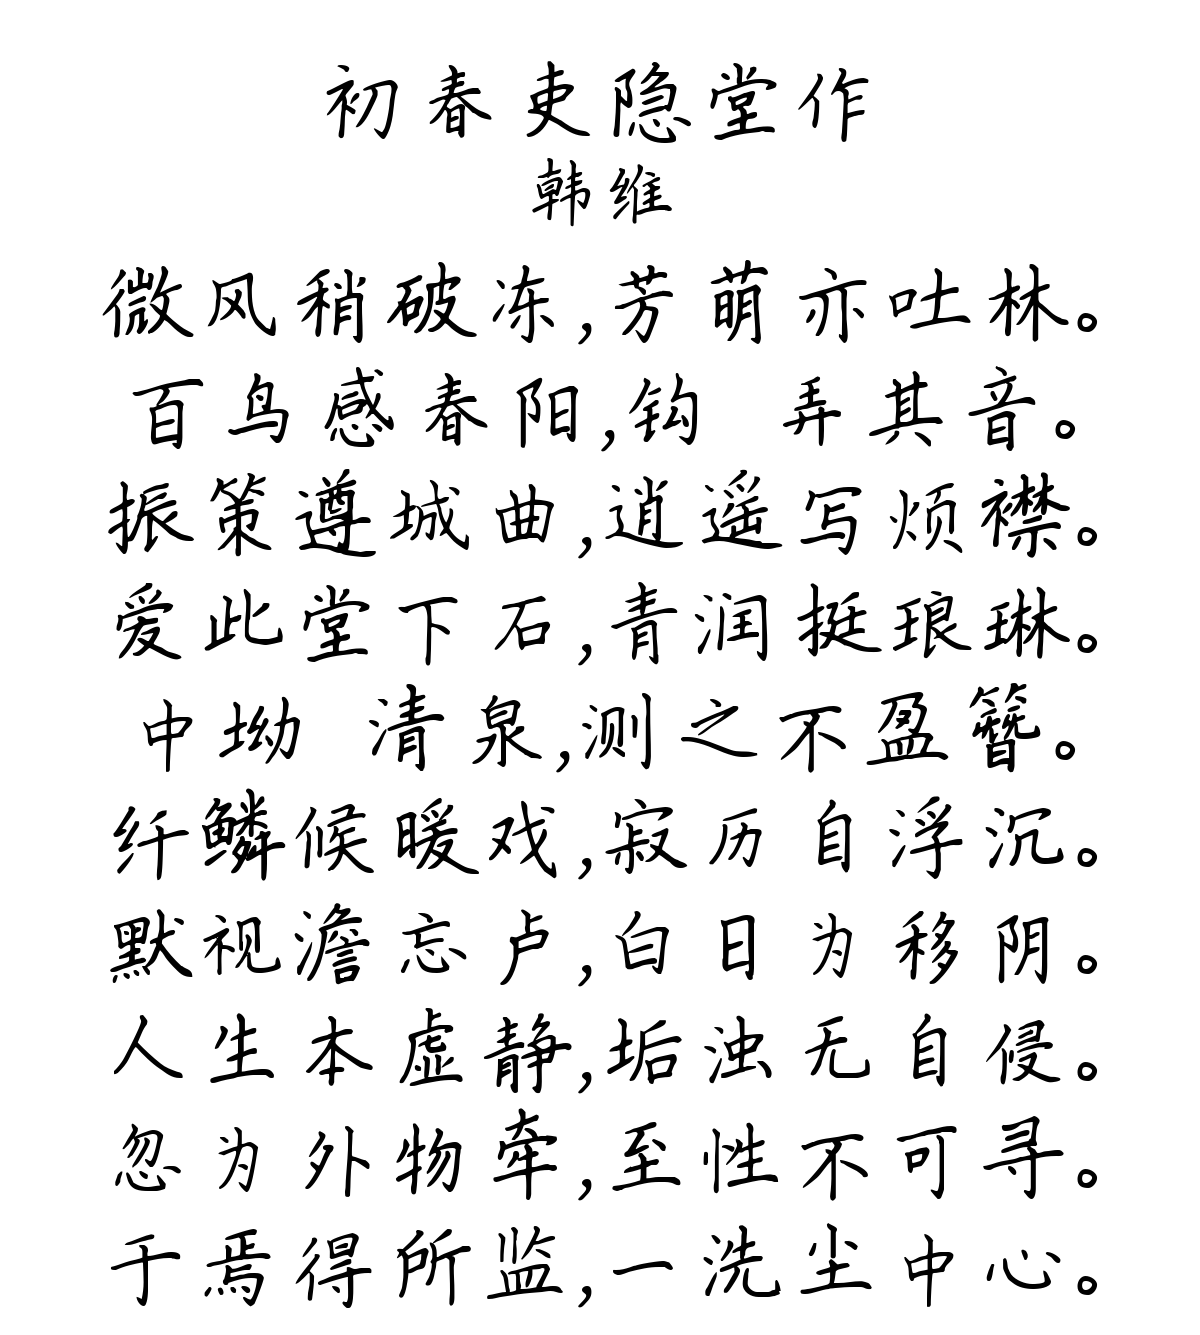 初春吏隐堂作
韩维
微风稍破冻,芳萌亦吐林。
百鸟感春阳,钩 弄其音。
振策遵城曲,逍遥写烦襟。
爱此堂下石,青润挺琅琳。
中坳 清泉,测之不盈簪。
纤鳞候暖戏,寂历自浮沉。
默视澹忘卢,白日为移阴。
人生本虚静,垢浊无自侵。
忽为外物牵,至性不可寻。
于焉得所监,一洗尘中心。